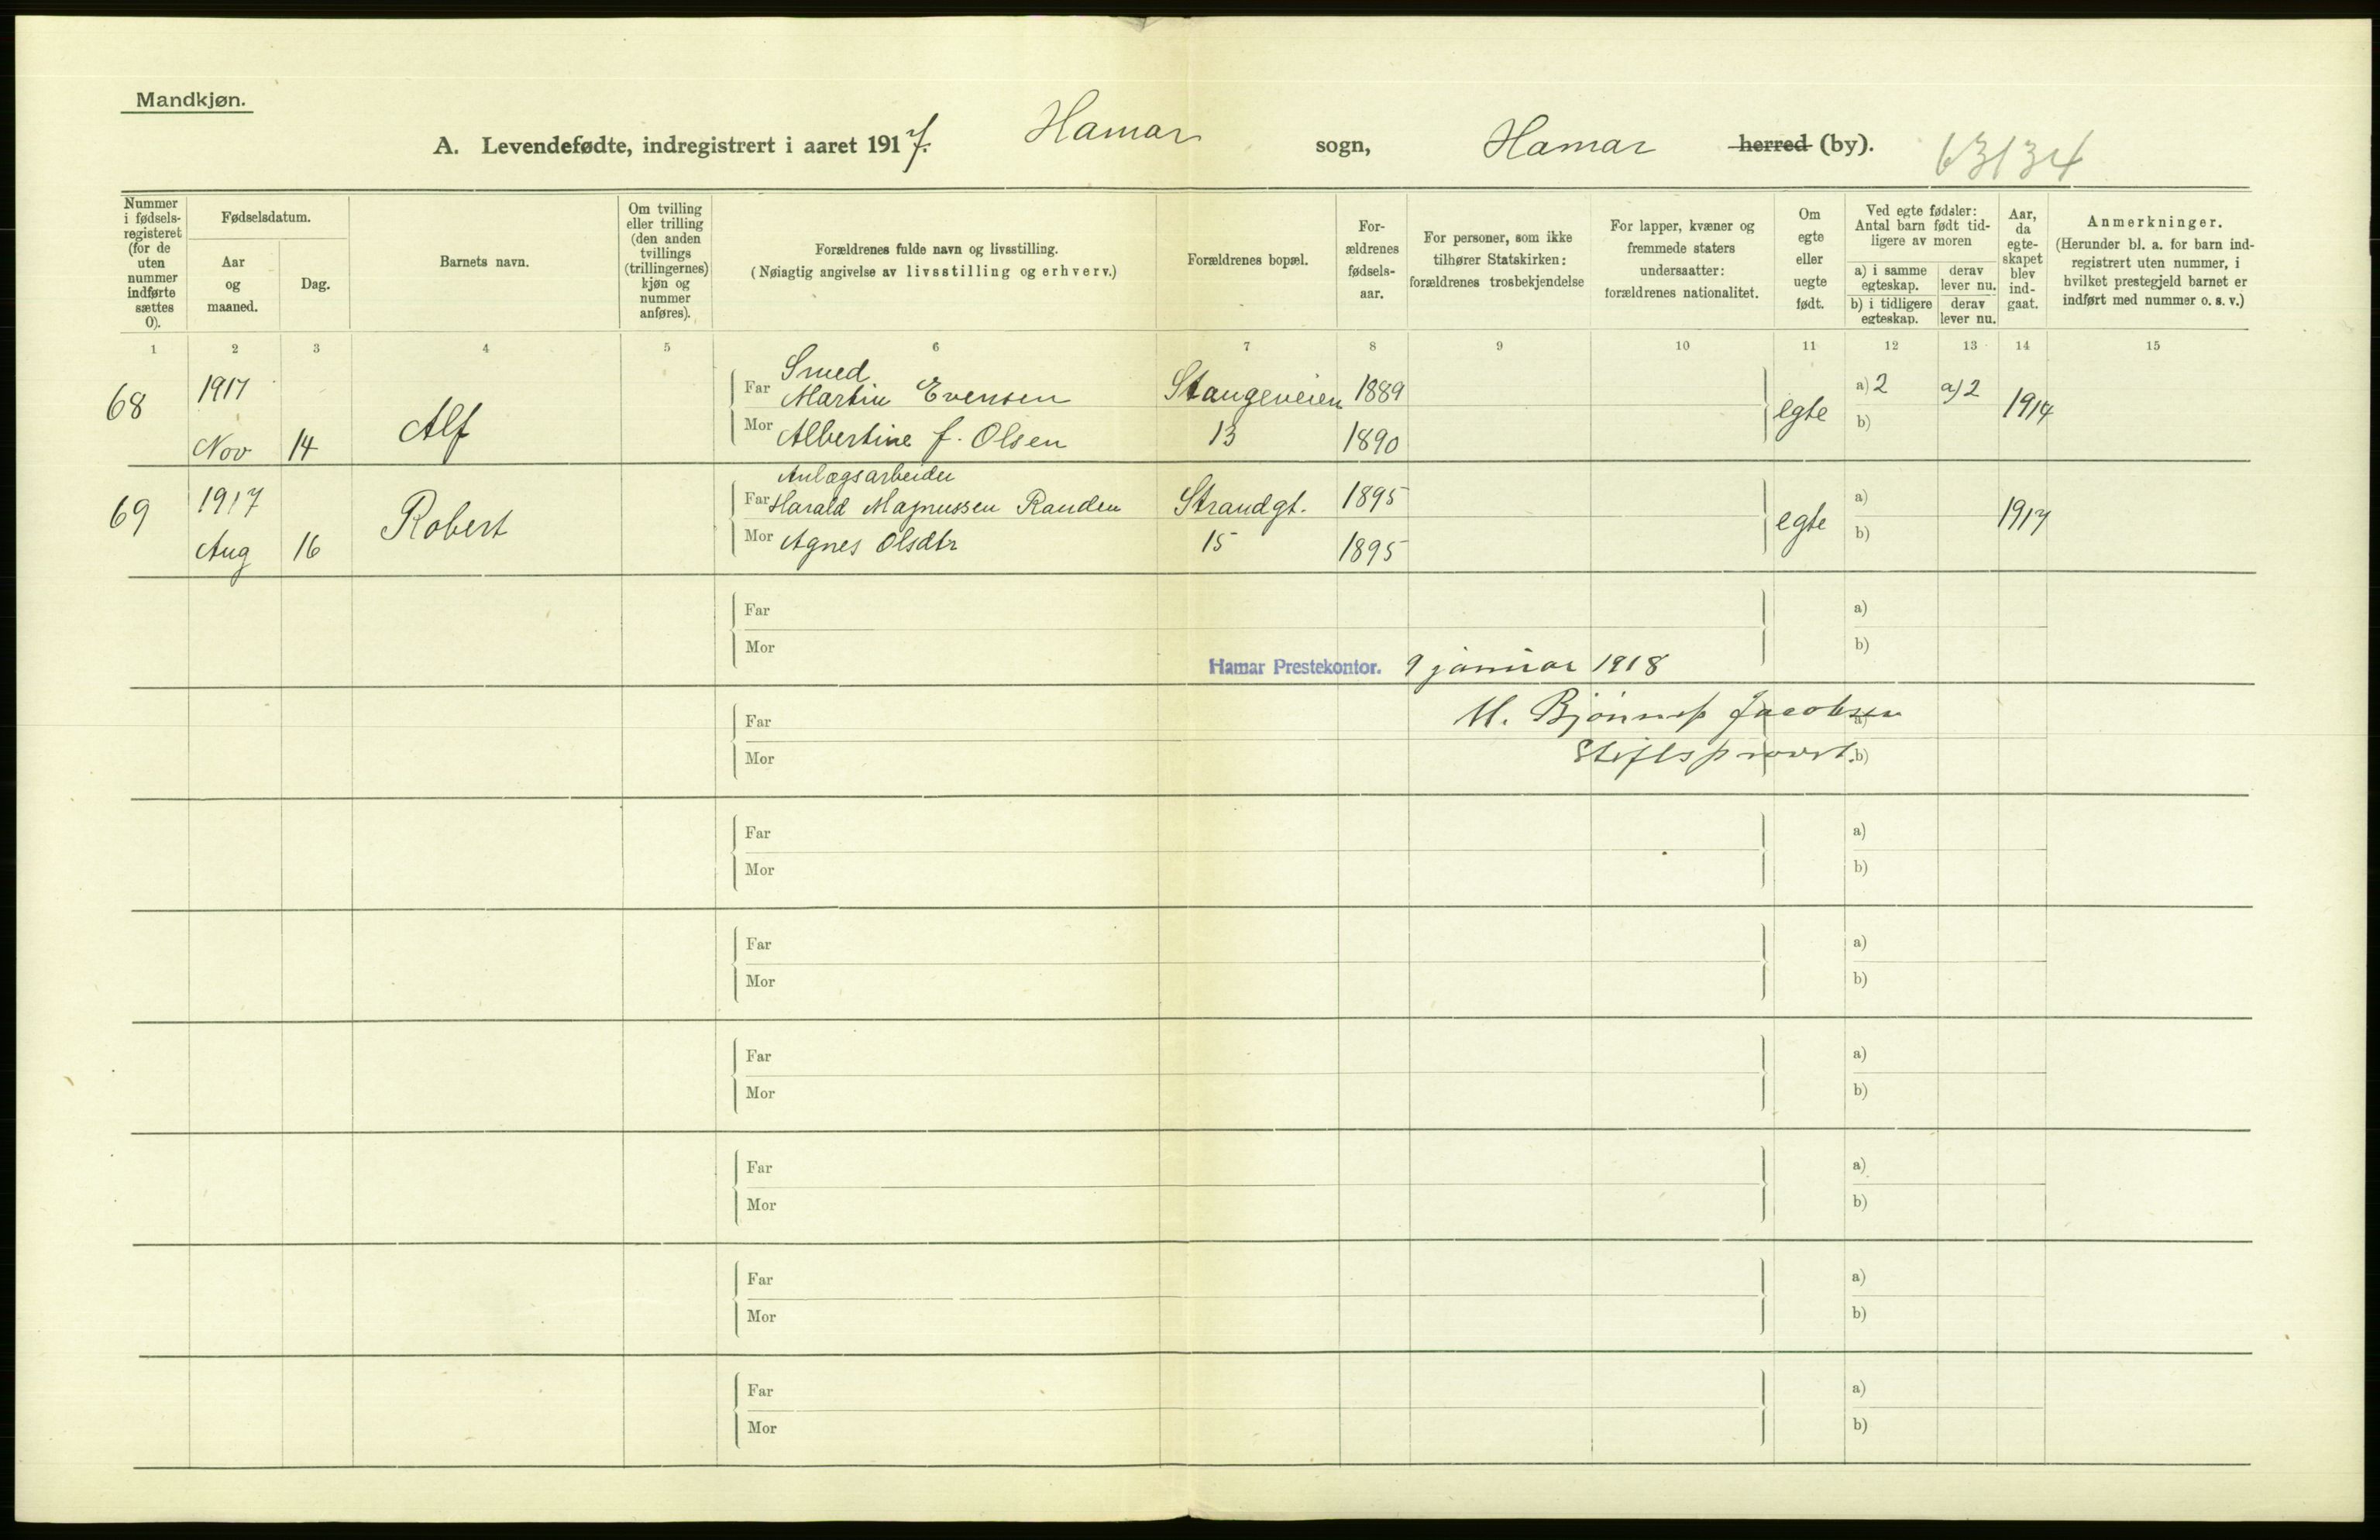 Mandkjøn.
A. Levendefødte, indregistrert i aaret 1917. Hamar sogn, Hamar herred (by). 63134
Nummer i fødsels-registeret (for de uten nummer indførte sættes 0).
Fødselsdatum.
Aar og maaned.
Dag.
Barnets navn.
Om tvilling eller trilling (den anden tvillings (trillingernes) kjøn og nummer anføres).
Forældrenes fulde navn og livsstilling.
(Nøiagtig angivelse av livsstilling og erhverv.)
Forældrenes bopæl.
For-ældrenes fødsels-aar.
For personer, som ikke tilhører Statskirken: forældrenes trosbekjendelse
For lapper, kvæner og fremmede staters undersaatter: forældrenes nationalitet.
Om egte eller uegte født.
Ved egte fødsler: Antal barn født tid-ligere av moren
a) i samme egteskap.
derav lever nu.
b) i tidligere egteskap.
derav lever nu.
Aar, da egte-skapet blev ind-gaat.
Anmerkninger.
(Herunder bl. a. for barn ind-registrert uten nummer, i hvilket prestegjeld barnet er indført med nummer o. s. v.)
1 2 3 4 5 6 7 8 9 10 11 12 13 14 15
Smed
68 1917 Far Martin Evensen Stangeveien 1889 a) 2 a) 2
Alf egte 1914
Nov 14 Mor Albertine f. Olsen 13 1890 b)
Anlægsarbeider
69 1917 Far Harald Magnussen Randen Strandgt. 1895 a)
Robert egte 1917
Aug 16 Mor Agnes Olsdtr 15 1895 b)
Far a)
Mor b)
Hamar Prestekontor. 9 januar 1918
Far Jacobsen a)
Mor Stiftsprovst. b)
Far a)
Mor b)
Far a)
Mor b)
Far a)
Mor b)
Far a)
Mor b)
Far a)
Mor b)
Far a)
Mor b)